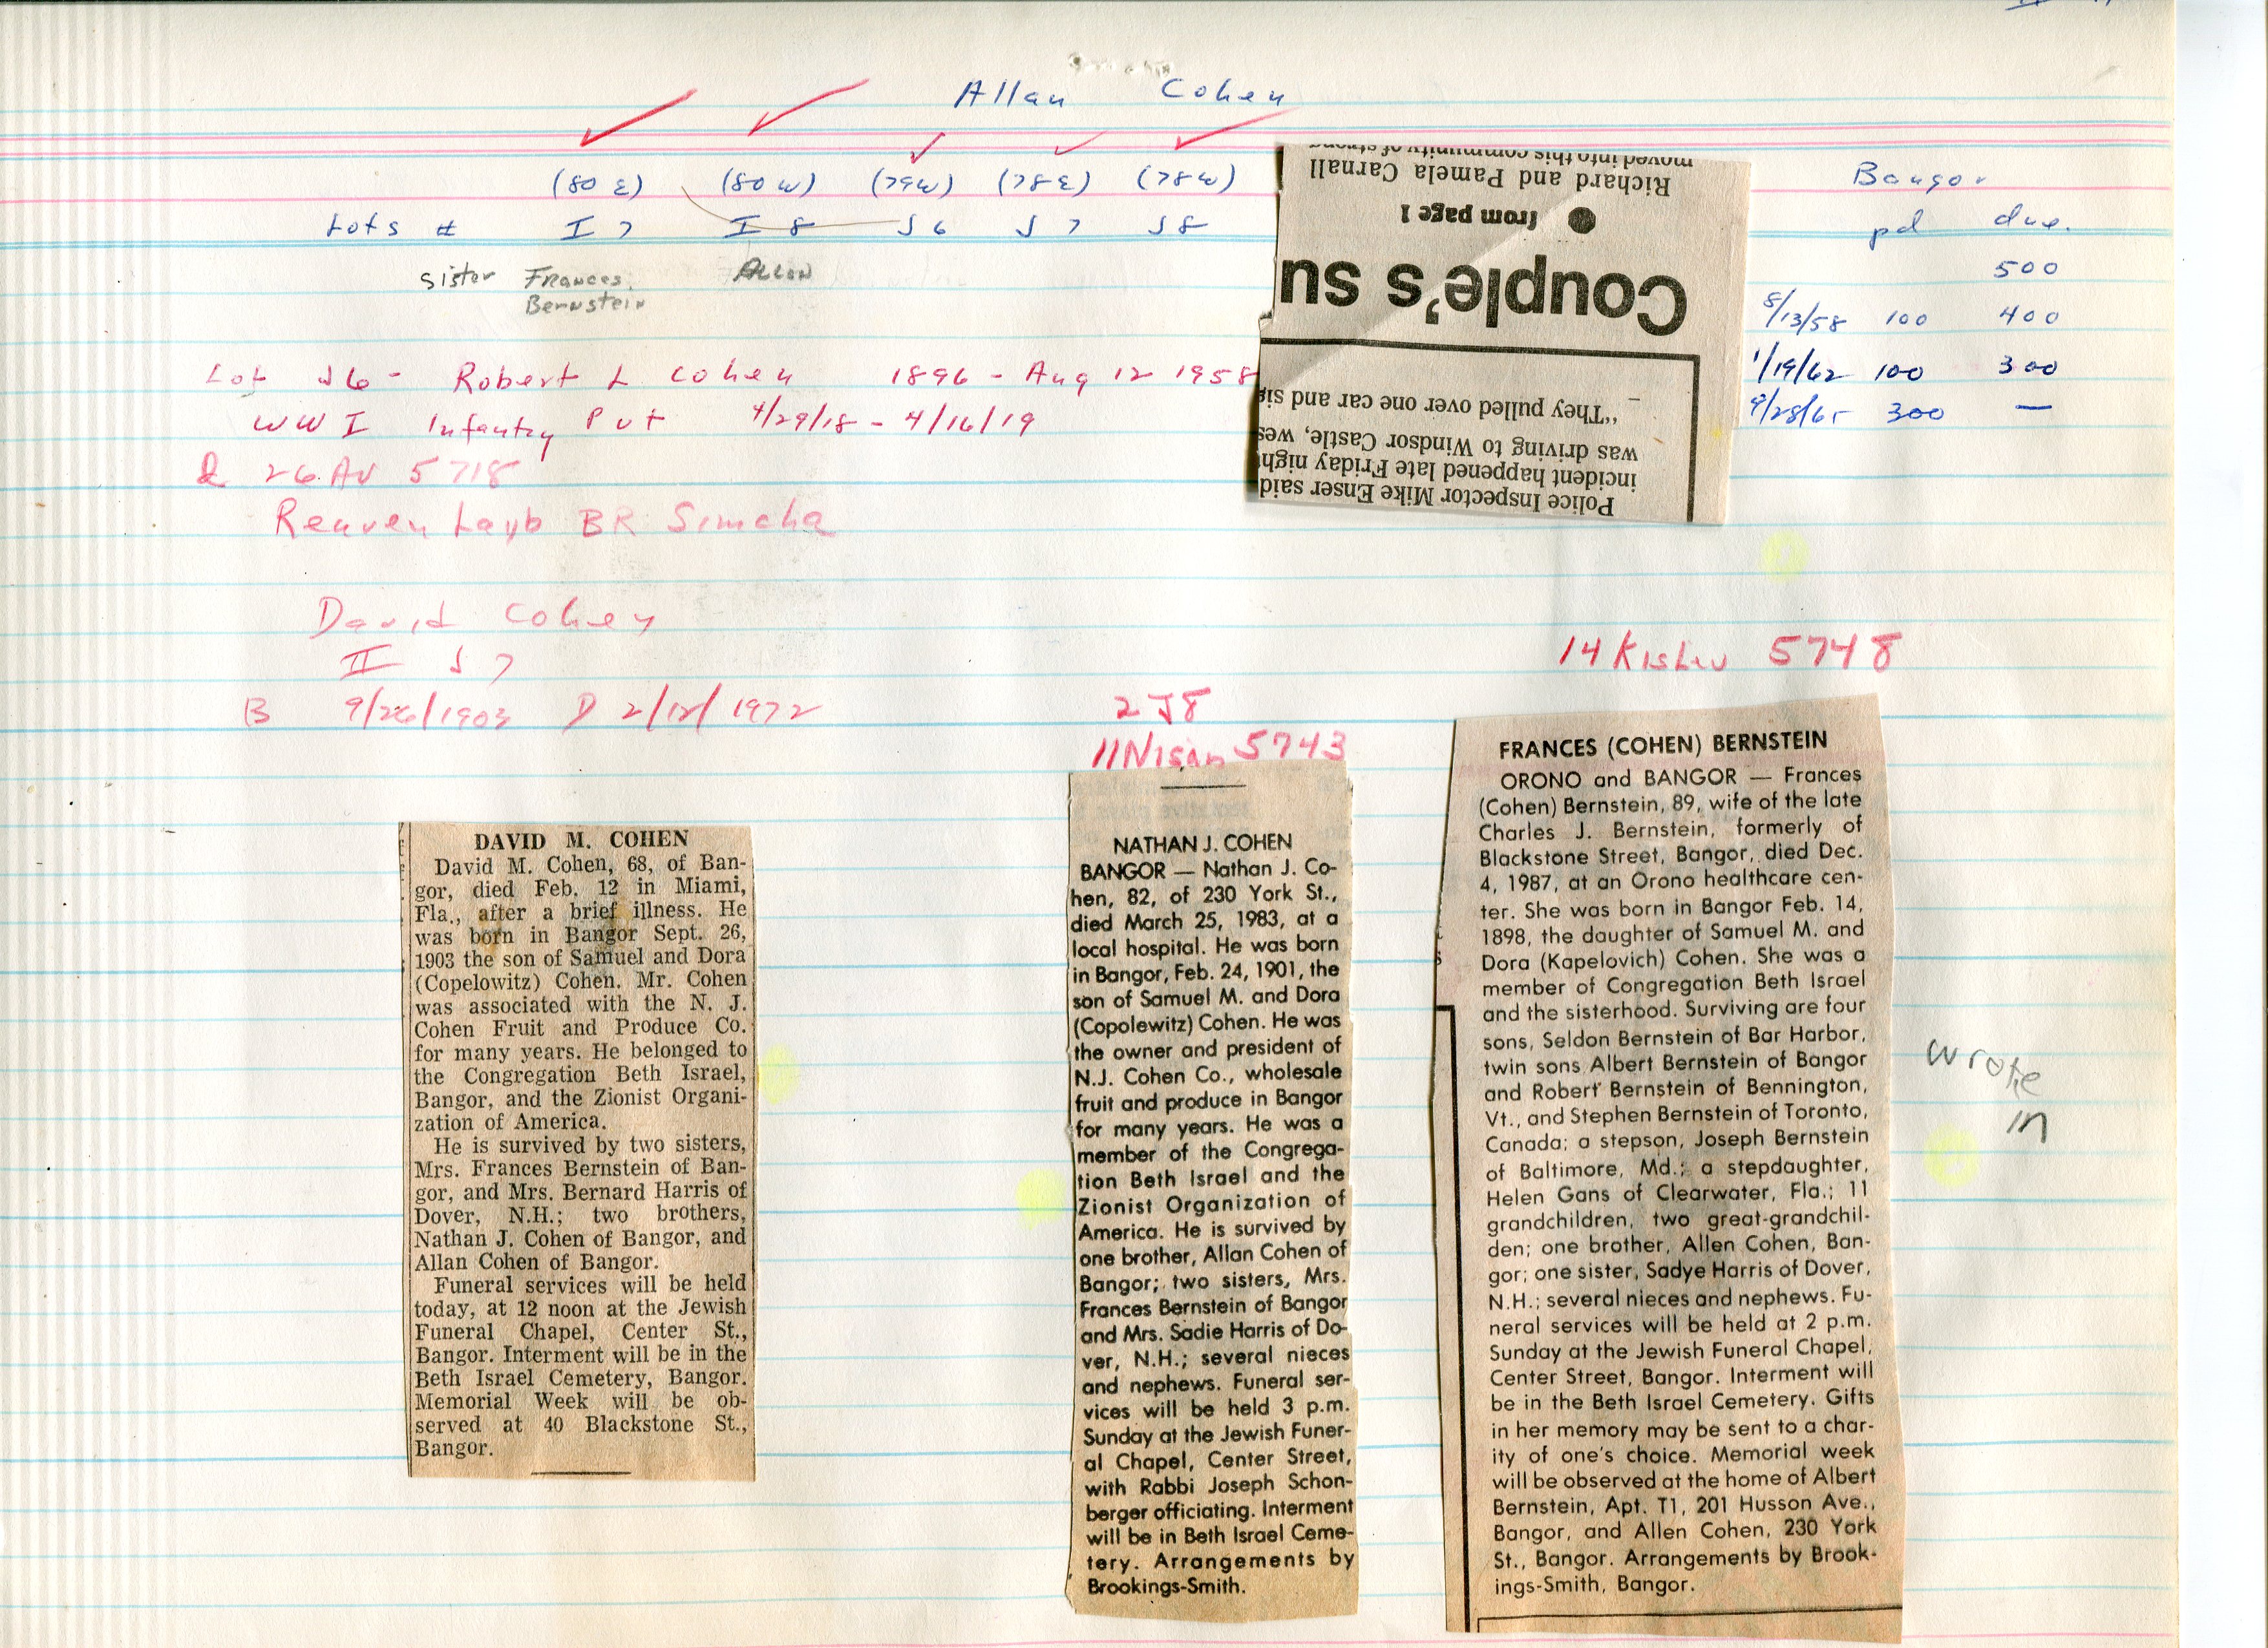 Allan Cohen
(80 E) (80 W) (79W) (78E) (78W)
Lots # I 7 I 8 J 6 J 7 J 8
sister Frances Bernstein
Allan
Bangor
pd due.
500
8/13/58 100 400
1/19/62 100 300
9/28/65 300 —
Richard and Pamela Carnall
moved into this community of strong
● from page 1
Couple's su
"They pulled over one car and sig
was driving to Windsor Castle, wes
incident happened late Friday night
Police Inspector Mike Enser said
Lot J6 - Robert L Cohen 1896 - Aug 12 1958
WW I Infantry Pvt 4/29/18 - 4/16/19
26 AV 5718
Reuven Layb BR Simcha
David Cohen
II J 7
B 9/26/1903 D 2/12/1972
DAVID M. COHEN
David M. Cohen, 68, of Ban-
gor, died Feb. 12 in Miami,
Fla., after a brief illness. He
was born in Bangor Sept. 26,
1903 the son of Samuel and Dora
(Copelowitz) Cohen. Mr. Cohen
was associated with the N. J.
Cohen Fruit and Produce Co.
for many years. He belonged to
the Congregation Beth Israel,
Bangor, and the Zionist Organi-
zation of America.
He is survived by two sisters,
Mrs. Frances Bernstein of Ban-
gor, and Mrs. Bernard Harris of
Dover, N.H.; two brothers,
Nathan J. Cohen of Bangor, and
Allan Cohen of Bangor.
Funeral services will be held
today, at 12 noon at the Jewish
Funeral Chapel, Center St.,
Bangor. Interment will be in the
Beth Israel Cemetery, Bangor.
Memorial Week will be ob-
served at 40 Blackstone St.,
Bangor.
2 J8
11 Nisan 5743
NATHAN J. COHEN
BANGOR — Nathan J. Co-
hen, 82, of 230 York St.,
died March 25, 1983, at a
local hospital. He was born
in Bangor, Feb. 24, 1901, the
son of Samuel M. and Dora
(Copolewitz) Cohen. He was
the owner and president of
N.J. Cohen Co., wholesale
fruit and produce in Bangor
for many years. He was a
member of the Congrega-
tion Beth Israel and the
Zionist Organization of
America. He is survived by
one brother, Allan Cohen of
Bangor; two sisters, Mrs.
Frances Bernstein of Bangor
and Mrs. Sadie Harris of Do-
ver, N.H.; several nieces
and nephews. Funeral ser-
vices will be held 3 p.m.
Sunday at the Jewish Funer-
al Chapel, Center Street,
with Rabbi Joseph Schon-
berger officiating. Interment
will be in Beth Israel Ceme-
tery. Arrangements by
Brookings-Smith.
14 Kislev 5748
FRANCES (COHEN) BERNSTEIN
ORONO and BANGOR — Frances
(Cohen) Bernstein, 89, wife of the late
Charles J. Bernstein, formerly of
Blackstone Street, Bangor, died Dec.
4, 1987, at an Orono healthcare cen-
ter. She was born in Bangor Feb. 14,
1898, the daughter of Samuel M. and
Dora (Kapelovich) Cohen. She was a
member of Congregation Beth Israel
and the sisterhood. Surviving are four
sons, Seldon Bernstein of Bar Harbor,
twin sons Albert Bernstein of Bangor
and Robert Bernstein of Bennington,
Vt., and Stephen Bernstein of Toronto,
Canada; a stepson, Joseph Bernstein
of Baltimore, Md.; a stepdaughter,
Helen Gans of Clearwater, Fla.; 11
grandchildren, two great-grandchil-
den; one brother, Allen Cohen, Ban-
gor; one sister, Sadye Harris of Dover,
N.H.; several nieces and nephews. Fu-
neral services will be held at 2 p.m.
Sunday at the Jewish Funeral Chapel,
Center Street, Bangor. Interment will
be in the Beth Israel Cemetery. Gifts
in her memory may be sent to a char-
ity of one's choice. Memorial week
will be observed at the home of Albert
Bernstein, Apt. T1, 201 Husson Ave.,
Bangor, and Allen Cohen, 230 York
St., Bangor. Arrangements by Brook-
ings-Smith, Bangor.
wrote
in